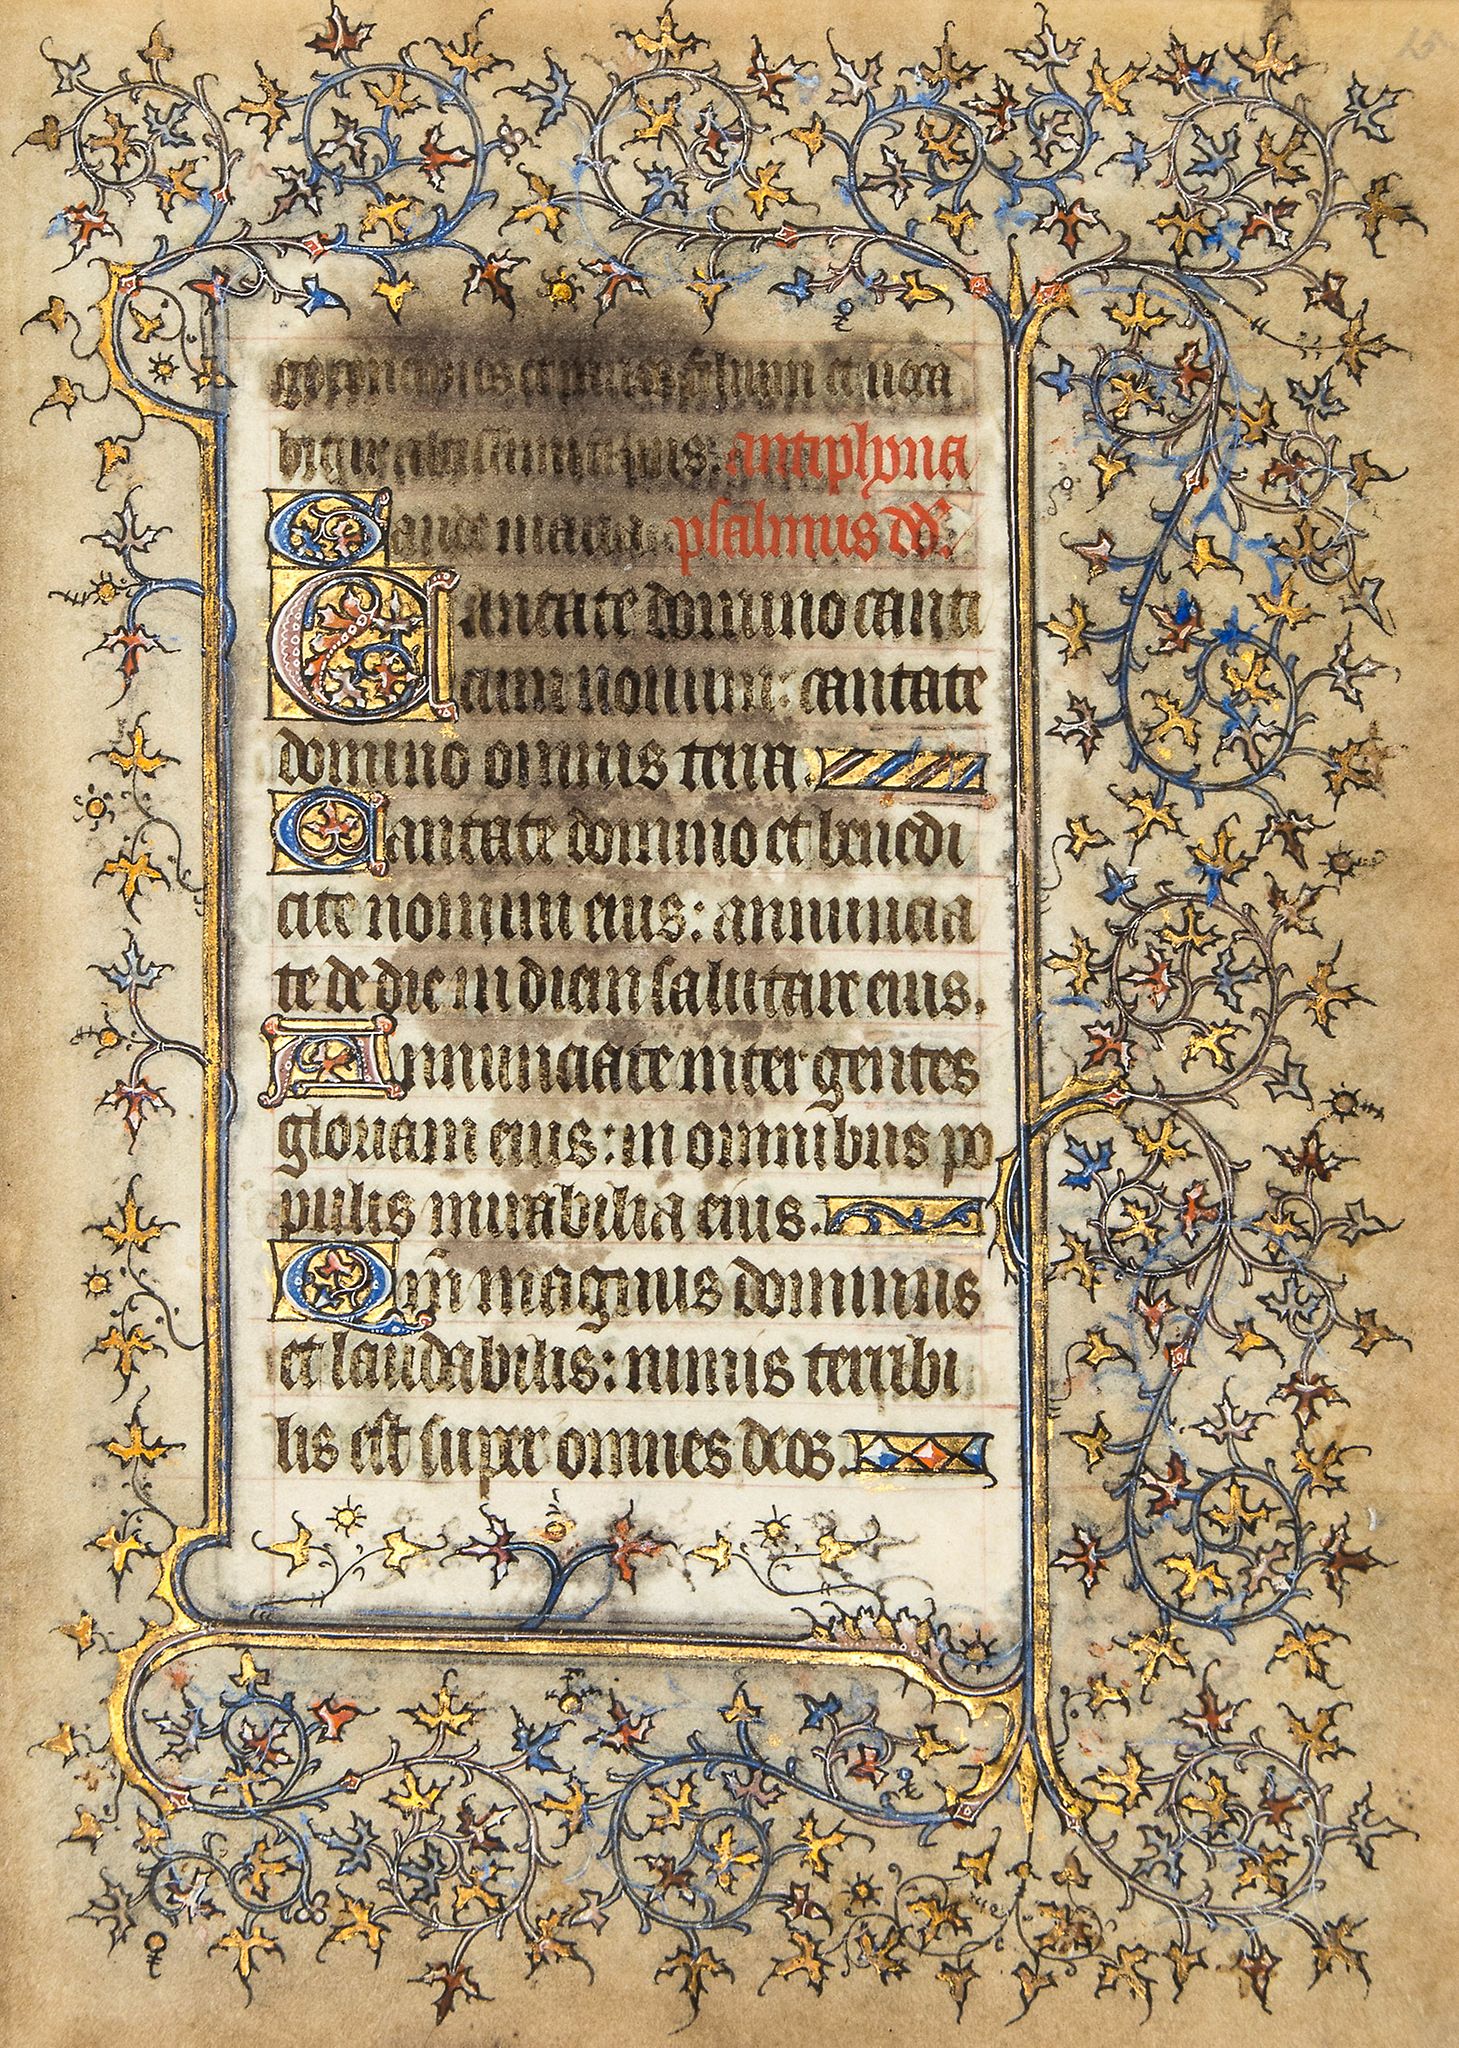 et paries filium et uoca
bitur altissimi antiphona
Gaude maria. psalmus dd.
Cantate domino canti
cum nouum: cantate
domino omnis terra.
Cantate domino et benedi
cite nomini eius: annuncia
te de die in diem salutare eius.
Annunciate inter gentes
gloriam eius: in omnibus po
pulis mirabilia eius.
Qm̄ magnus dominus
et laudabilis: nimis terribi
lis est super omnes deos.